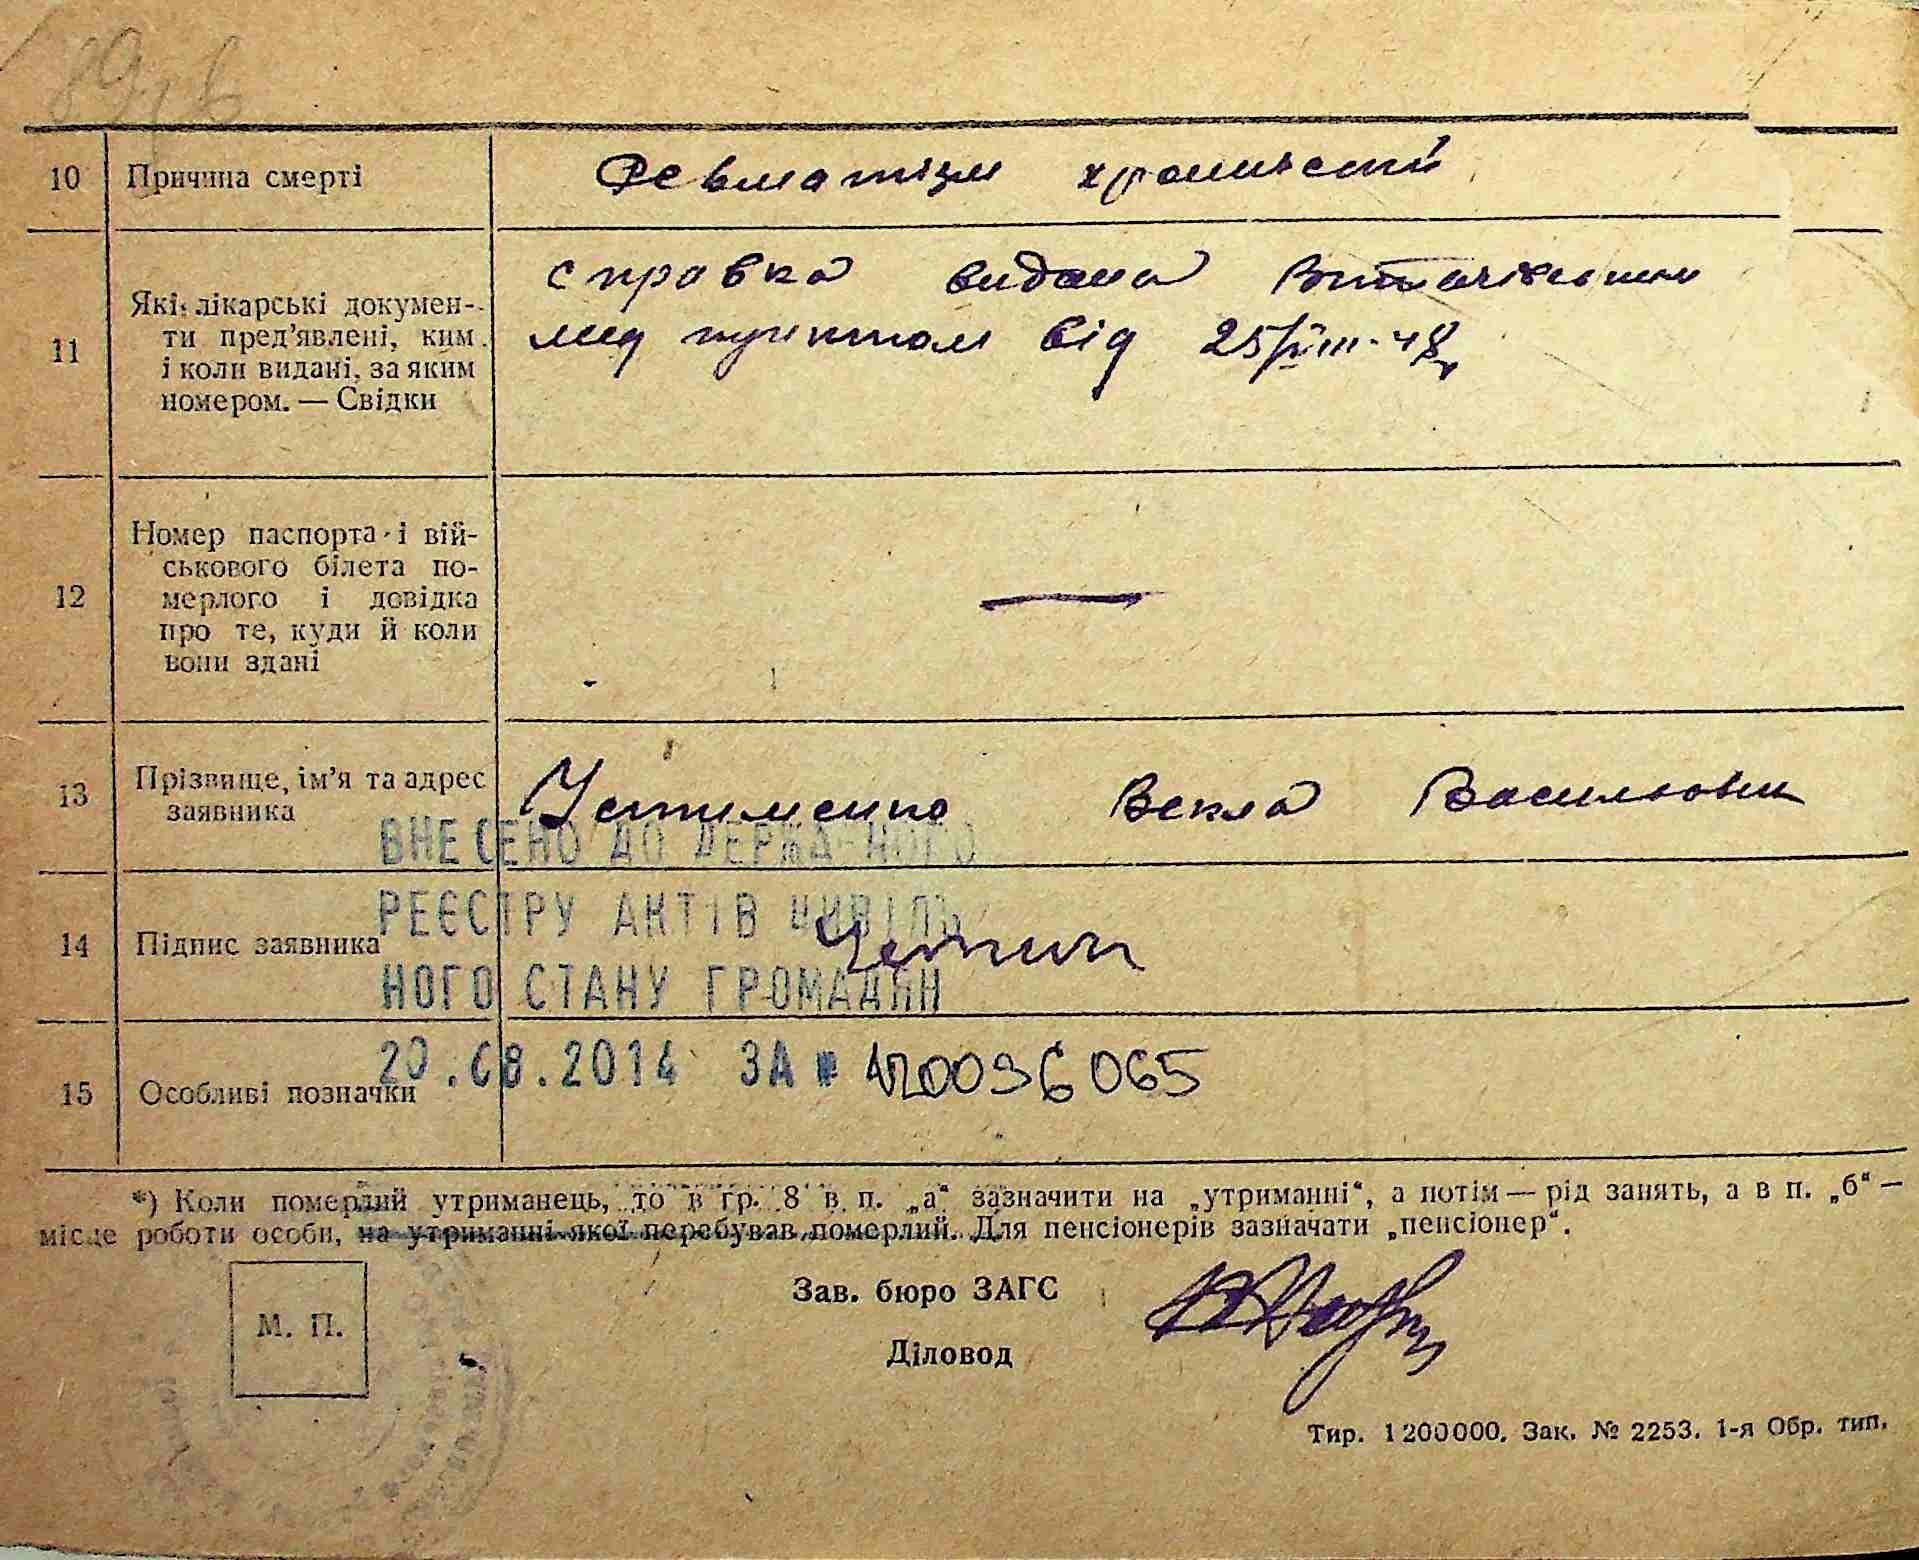 10 Причина смерті Ревматізм хронический
11 Які лікарські докумен-
ти пред'явлені, ким
і коли видані, за яким
номером. — Свідки
справка видана Витачівським
мед пунктом від 25/VIII-48р
12 Номер паспорта і вій-
ськового білета по-
мерлого і довідка
про те, куди й коли
вони здані
—
13 Прізвище, ім'я та адрес
заявника
Устименко Векла Васильовн
ВНЕСЕНО ДО ДЕРЖАВНОГО
РЕЄСТРУ АКТІВ ЦИВІЛЬ
14 Підпис заявника Устим
НОГО СТАНУ ГРОМАДЯН
20.08.2014 ЗА № 120096065
15 Особливі позначки
*) Коли померлий утриманець, то в гр. 8 в п. „а“ зазначити на „утриманні“, а потім — рід занять, а в п. „б“ —
місце роботи особи, на утриманні якої перебував померлий. Для пенсіонерів зазначати „пенсіонер“.
М. П.
Зав. бюро ЗАГС
Діловод
Тир. 1200000. Зак. № 2253. 1-я Обр. тип.